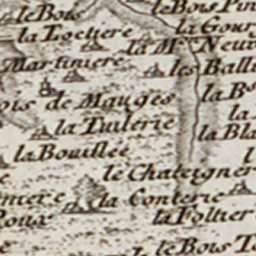 le Bois
le Bois Pin
la Loctiere
la Gour
la M. Neuv
Martiniere
les Ball
la B
ois de Mauges
la Tuilerie
la Bla
la Bouillée
le Chateigner
niere
la Conterie
Roux
la Foltier
le Bois T